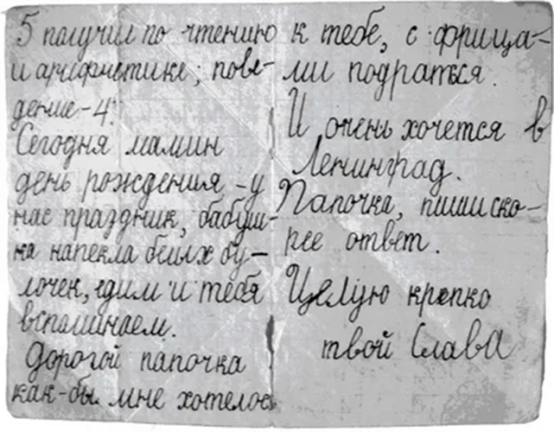 5 получил по чтению
и арифметике; пове-
дение-4.
Сегодня мамин
день рождения - у
нас праздник, бабуш-
ка напекла белых бу-
лочек, едим и тебя
вспоминаем.
Дорогой папочка
как-бы мне хотелось
к тебе, с фрица-
ми подраться.
И очень хочется в
Ленинград.
Папочка, пиши ско-
рее ответ.
Целую крепко
твой Слава